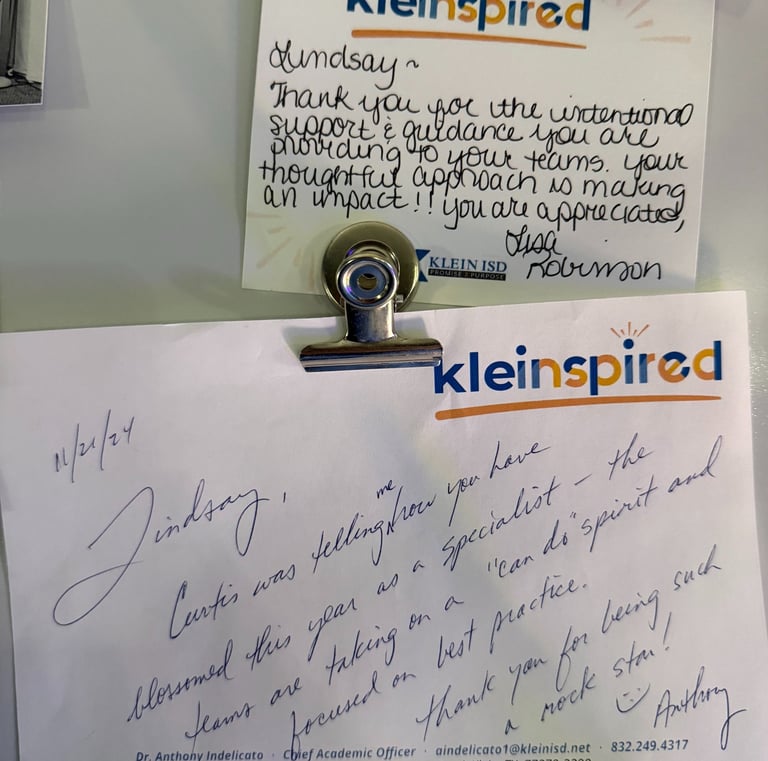 kleinspired
Lindsay~
Thank you for the intentional
support & guidance you are
providing to your teams. Your
thoughtful approach is making
an impact!! You are appreciated,
Lisa
Robinson
KLEIN ISD
PROMISE 2 PURPOSE
kleinspired
11/21/24
Lindsay,
Curtis was telling me how you have
blossomed this year as a specialist – the
teams are taking on a "can do" spirit and
focused on best practice.
Thank you for being such
a rock star!
Anthony
Dr. Anthony Indelicato · Chief Academic Officer · aindelicato1@kleinisd.net · 832.249.4317